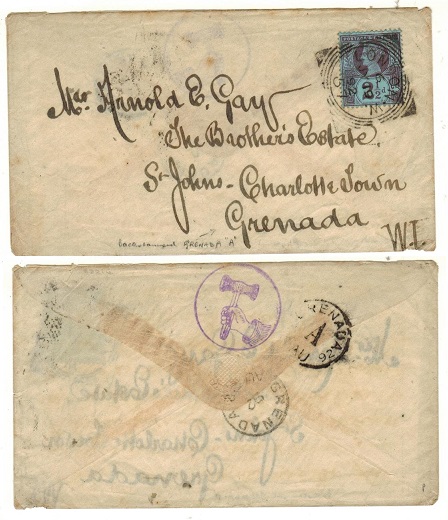 Mr Arnold E. Gay
The Brother's Estate
St Johns - Charlotte Town
Grenada
W.I.
GRENADA "A"
GRENADA
A
92
GRENADA